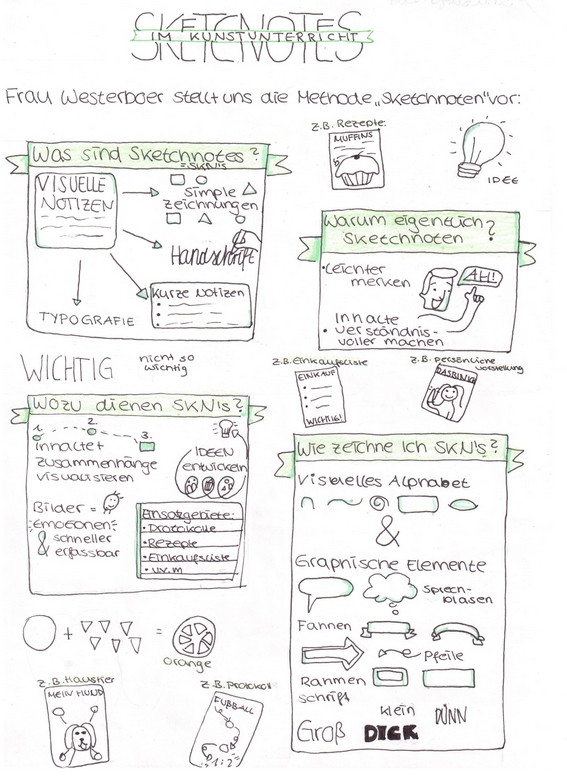 SKETCNOTES
IM KUNSTUNTERRICHT
Frau Westerboer stellt uns die Methode „Sketchnoten" vor:
Was sind Sketchnotes?
= SKN's
VISUELLE
NOTIZEN
simple
Zeichnungen
Handschrift
Kurze Notizen
TYPOGRAFIE
z.B. Rezepte:
MUFFINS
IDEE
Warum eigentlich
Sketchnoten?
• Leichter
merken
AH!
Inhalte
• verständnis-
voller machen
WICHTIG
nicht so
wichtig
z.B. Einkaufsliste
EINKAUF
WICHTIG!
z.B. persönliche
Vorstellung
DAS BIN ICH
Wozu dienen SKN's?
1.
2.
3.
Inhalte +
zusammenhänge
visualisieren
IDEEN
entwickeln
Bilder =
Emotionen
& schneller
erfassbar
Einsatzgebiete:
• Protokolle
• Rezepte
• Einkaufsliste
• uv.m
+ =
Orange
z.B. Haustier
MEIN HUND
z.B. Protokoll
FUßBALL
1:2
Wie zeichne ich SKN's?
Visuelles Alphabet
&
Graphische Elemente
Sprech-
blasen
Fahnen
Pfeile
Rahmen
schrift
Groß
DICK
klein
DÜNN